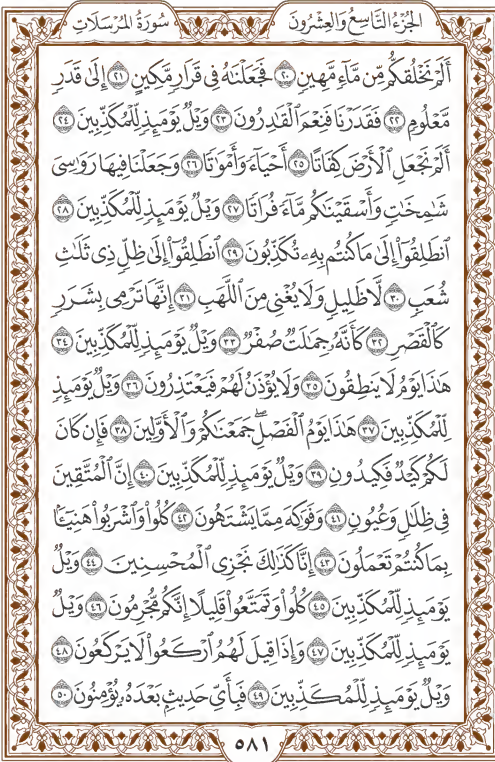 الجُزْءُ التَّاسِعُ وَالعِشْرُونَ سُورَةُ المُرْسَلَاتِ
أَلَمْ نَخْلُقكُّم مِّن مَّآءٍ مَّهِينٍ ٢٠ فَجَعَلْنَٰهُ فِى قَرَارٍ مَّكِينٍ ٢١ إِلَىٰ قَدَرٍ
مَّعْلُومٍ ٢٢ فَقَدَرْنَا فَنِعْمَ ٱلْقَٰدِرُونَ ٢٣ وَيْلٌ يَوْمَئِذٍ لِّلْمُكَذِّبِينَ ٢٤
أَلَمْ نَجْعَلِ ٱلْأَرْضَ كِفَاتًا ٢٥ أَحْيَآءً وَأَمْوَٰتًا ٢٦ وَجَعَلْنَا فِيهَا رَوَٰسِىَ
شَٰمِخَٰتٍ وَأَسْقَيْنَٰكُم مَّآءً فُرَاتًا ٢٧ وَيْلٌ يَوْمَئِذٍ لِّلْمُكَذِّبِينَ ٢٨
ٱنطَلِقُوٓا۟ إِلَىٰ مَا كُنتُم بِهِۦ تُكَذِّبُونَ ٢٩ ٱنطَلِقُوٓا۟ إِلَىٰ ظِلٍّ ذِى ثَلَٰثِ
شُعَبٍ ٣٠ لَّا ظَلِيلٍ وَلَا يُغْنِى مِنَ ٱللَّهَبِ ٣١ إِنَّهَا تَرْمِى بِشَرَرٍ
كَٱلْقَصْرِ ٣٢ كَأَنَّهُۥ جِمَٰلَتٌ صُفْرٌ ٣٣ وَيْلٌ يَوْمَئِذٍ لِّلْمُكَذِّبِينَ ٣٤
هَٰذَا يَوْمُ لَا يَنطِقُونَ ٣٥ وَلَا يُؤْذَنُ لَهُمْ فَيَعْتَذِرُونَ ٣٦ وَيْلٌ يَوْمَئِذٍ
لِّلْمُكَذِّبِينَ ٣٧ هَٰذَا يَوْمُ ٱلْفَصْلِ ۖ جَمَعْنَٰكُمْ وَٱلْأَوَّلِينَ ٣٨ فَإِن كَانَ
لَكُمْ كَيْدٌ فَكِيدُونِ ٣٩ وَيْلٌ يَوْمَئِذٍ لِّلْمُكَذِّبِينَ ٤٠ إِنَّ ٱلْمُتَّقِينَ
فِى ظِلَٰلٍ وَعُيُونٍ ٤١ وَفَوَٰكِهَ مِمَّا يَشْتَهُونَ ٤٢ كُلُوا۟ وَٱشْرَبُوا۟ هَنِيٓـًٔۢا
بِمَا كُنتُمْ تَعْمَلُونَ ٤٣ إِنَّا كَذَٰلِكَ نَجْزِى ٱلْمُحْسِنِينَ ٤٤ وَيْلٌ
يَوْمَئِذٍ لِّلْمُكَذِّبِينَ ٤٥ كُلُوا۟ وَتَمَتَّعُوا۟ قَلِيلًا إِنَّكُم مُّجْرِمُونَ ٤٦ وَيْلٌ
يَوْمَئِذٍ لِّلْمُكَذِّبِينَ ٤٧ وَإِذَا قِيلَ لَهُمُ ٱرْكَعُوا۟ لَا يَرْكَعُونَ ٤٨
وَيْلٌ يَوْمَئِذٍ لِّلْمُكَذِّبِينَ ٤٩ فَبِأَىِّ حَدِيثٍۭ بَعْدَهُۥ يُؤْمِنُونَ ٥٠
٥٨١